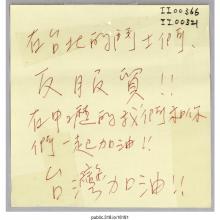 II00366
II00321
在台北的鬥士們、
反服貿!!
在中壢的我們和你
們一起加油!!
台灣加油!!
public.318.io/16161